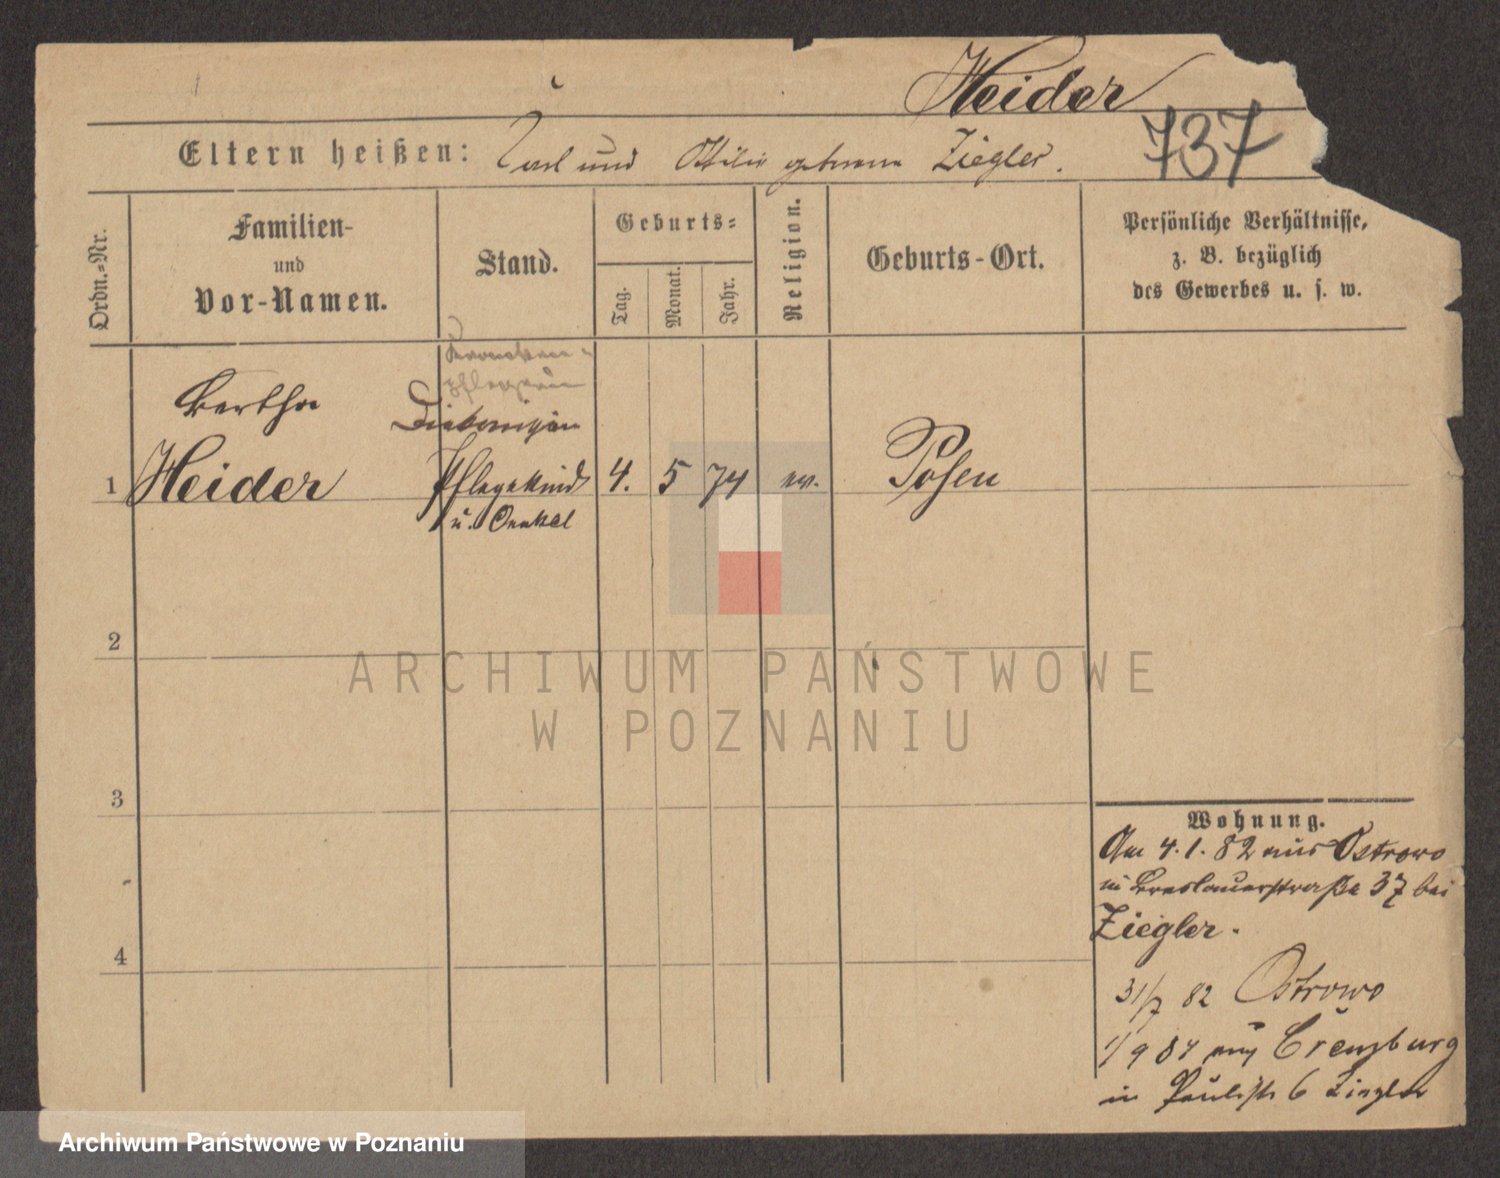 Heider
737
Eltern heißen: Carl und Ottilie geborene Ziegler.
Ordn.=Nr.
Familien-
und
Vor-Namen.
Stand.
Geburts=
Tag.
Monat.
Jahr.
Religion.
Geburts-Ort.
Persönliche Verhältnisse,
z. B. bezüglich
des Gewerbes u. s. w.
Kranken-
pflegerin
Bertha
Diakonissin
1 Heider Pflegekind 4. 5 74 ev. Posen
u. Onkel
2
3
4
Wohnung.
Am 4.1.82 aus Ostrowo
in Breslauerstraße 37 bei
Ziegler.
31/7 82 Ostrowo
1/9 84 aus Creuzburg
in Paulistr 6 Ziegler
ARCHIWUM PAŃSTWOWE
W POZNANIU
Archiwum Państwowe w Poznaniu